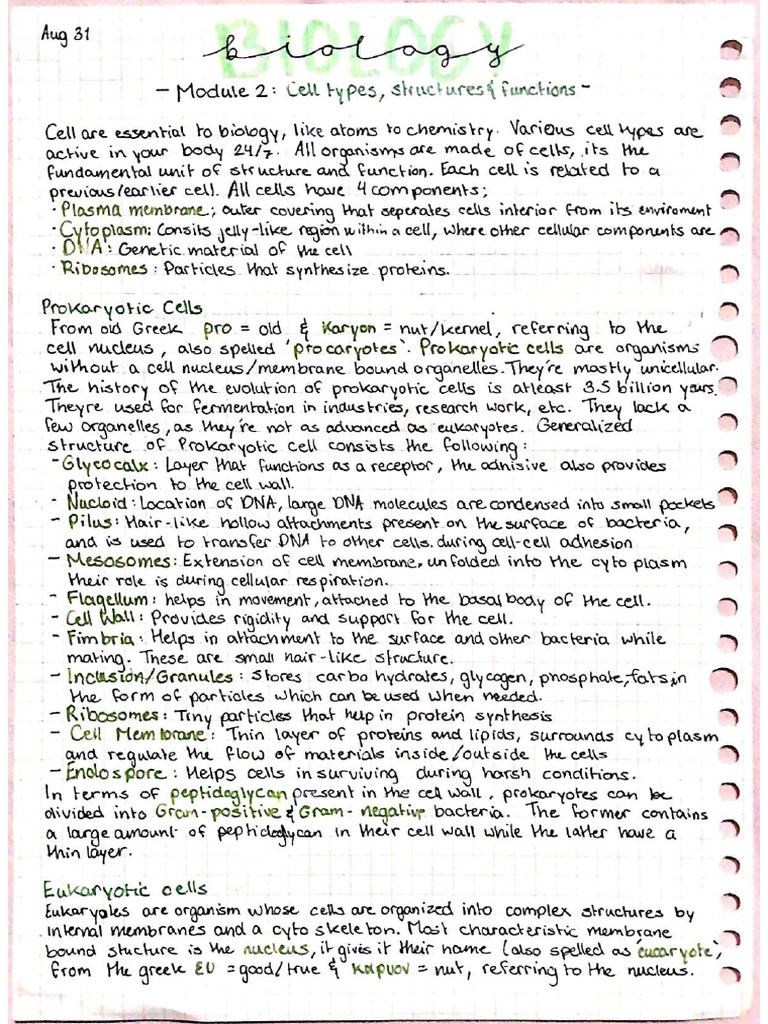 Aug 31
BIOLOGY
biology
- Module 2: Cell types, structures & functions -
Cell are essential to biology, like atoms to chemistry. Various cell types are
active in your body 24/7. All organisms are made of cells, its the
fundamental unit of structure and function. Each cell is related to a
previous/earlier cell. All cells have 4 components;
· Plasma membrane; outer covering that seperates cells interior from its enviroment
· Cytoplasm: Consits jelly-like region within a cell, where other cellular components are
· DNA: Genetic material of the cell
· Ribosomes: Particles that synthesize proteins.
Prokaryotic Cells
From old Greek pro = old & Karyon = nut/kernel, referring to the
cell nucleus, also spelled 'procaryotes'. Prokaryotic cells are organisms
without a cell nucleus/membrane bound organelles. They're mostly unicellular.
The history of the evolution of prokaryotic cells is atleast 3.5 billion years.
Theyre used for fermentation in industries, research work, etc. They lack a
few organelles, as they're not as advanced as eukaryotes. Generalized
structure of Prokaryotic cell consists the following:
- Glycocalx: Layer that functions as a receptor, the adhisive also provides
protection to the cell wall.
- Nucloid: Location of DNA, large DNA molecules are condensed into small pockets
- Pilus: Hair-like hollow attachments present on the surface of bacteria,
and is used to transfer DNA to other cells during cell-cell adhesion
- Mesosomes: Extension of cell membrane, unfolded into the cyto plasm
their role is during cellular respiration.
- Flagellum: helps in movement, attached to the basal body of the cell.
- Cell Wall: Provides rigidity and support for the cell.
- Fimbria: Helps in attachment to the surface and other bacteria while
mating. These are small hair-like structure.
- Inclusion/Granules: Stores carbo hydrates, glycogen, phosphate, fats, in
the form of particles which can be used when needed.
- Ribosomes: Tiny particles that help in protein synthesis
- Cell Membrane: Thin layer of proteins and lipids, surrounds cytoplasm
and regulate the flow of materials inside/outside the cells
- Endospore: Helps cells in surviving during harsh conditions.
In terms of peptidoglycan present in the cell wall, prokaryotes can be
divided into Gram-positive & Gram-negative bacteria. The former contains
a large amount of peptidoglycan in their cell wall while the latter have a
thin layer.
Eukaryotic cells
Eukaryotes are organism whose cells are organized into complex structures by
internal membranes and a cyto skeleton. Most characteristic membrane
bound stucture is the nucleus, it gives it their name (also spelled as 'eucaryote',
from the greek EU = good/true & καρυον = nut, referring to the nucleus.